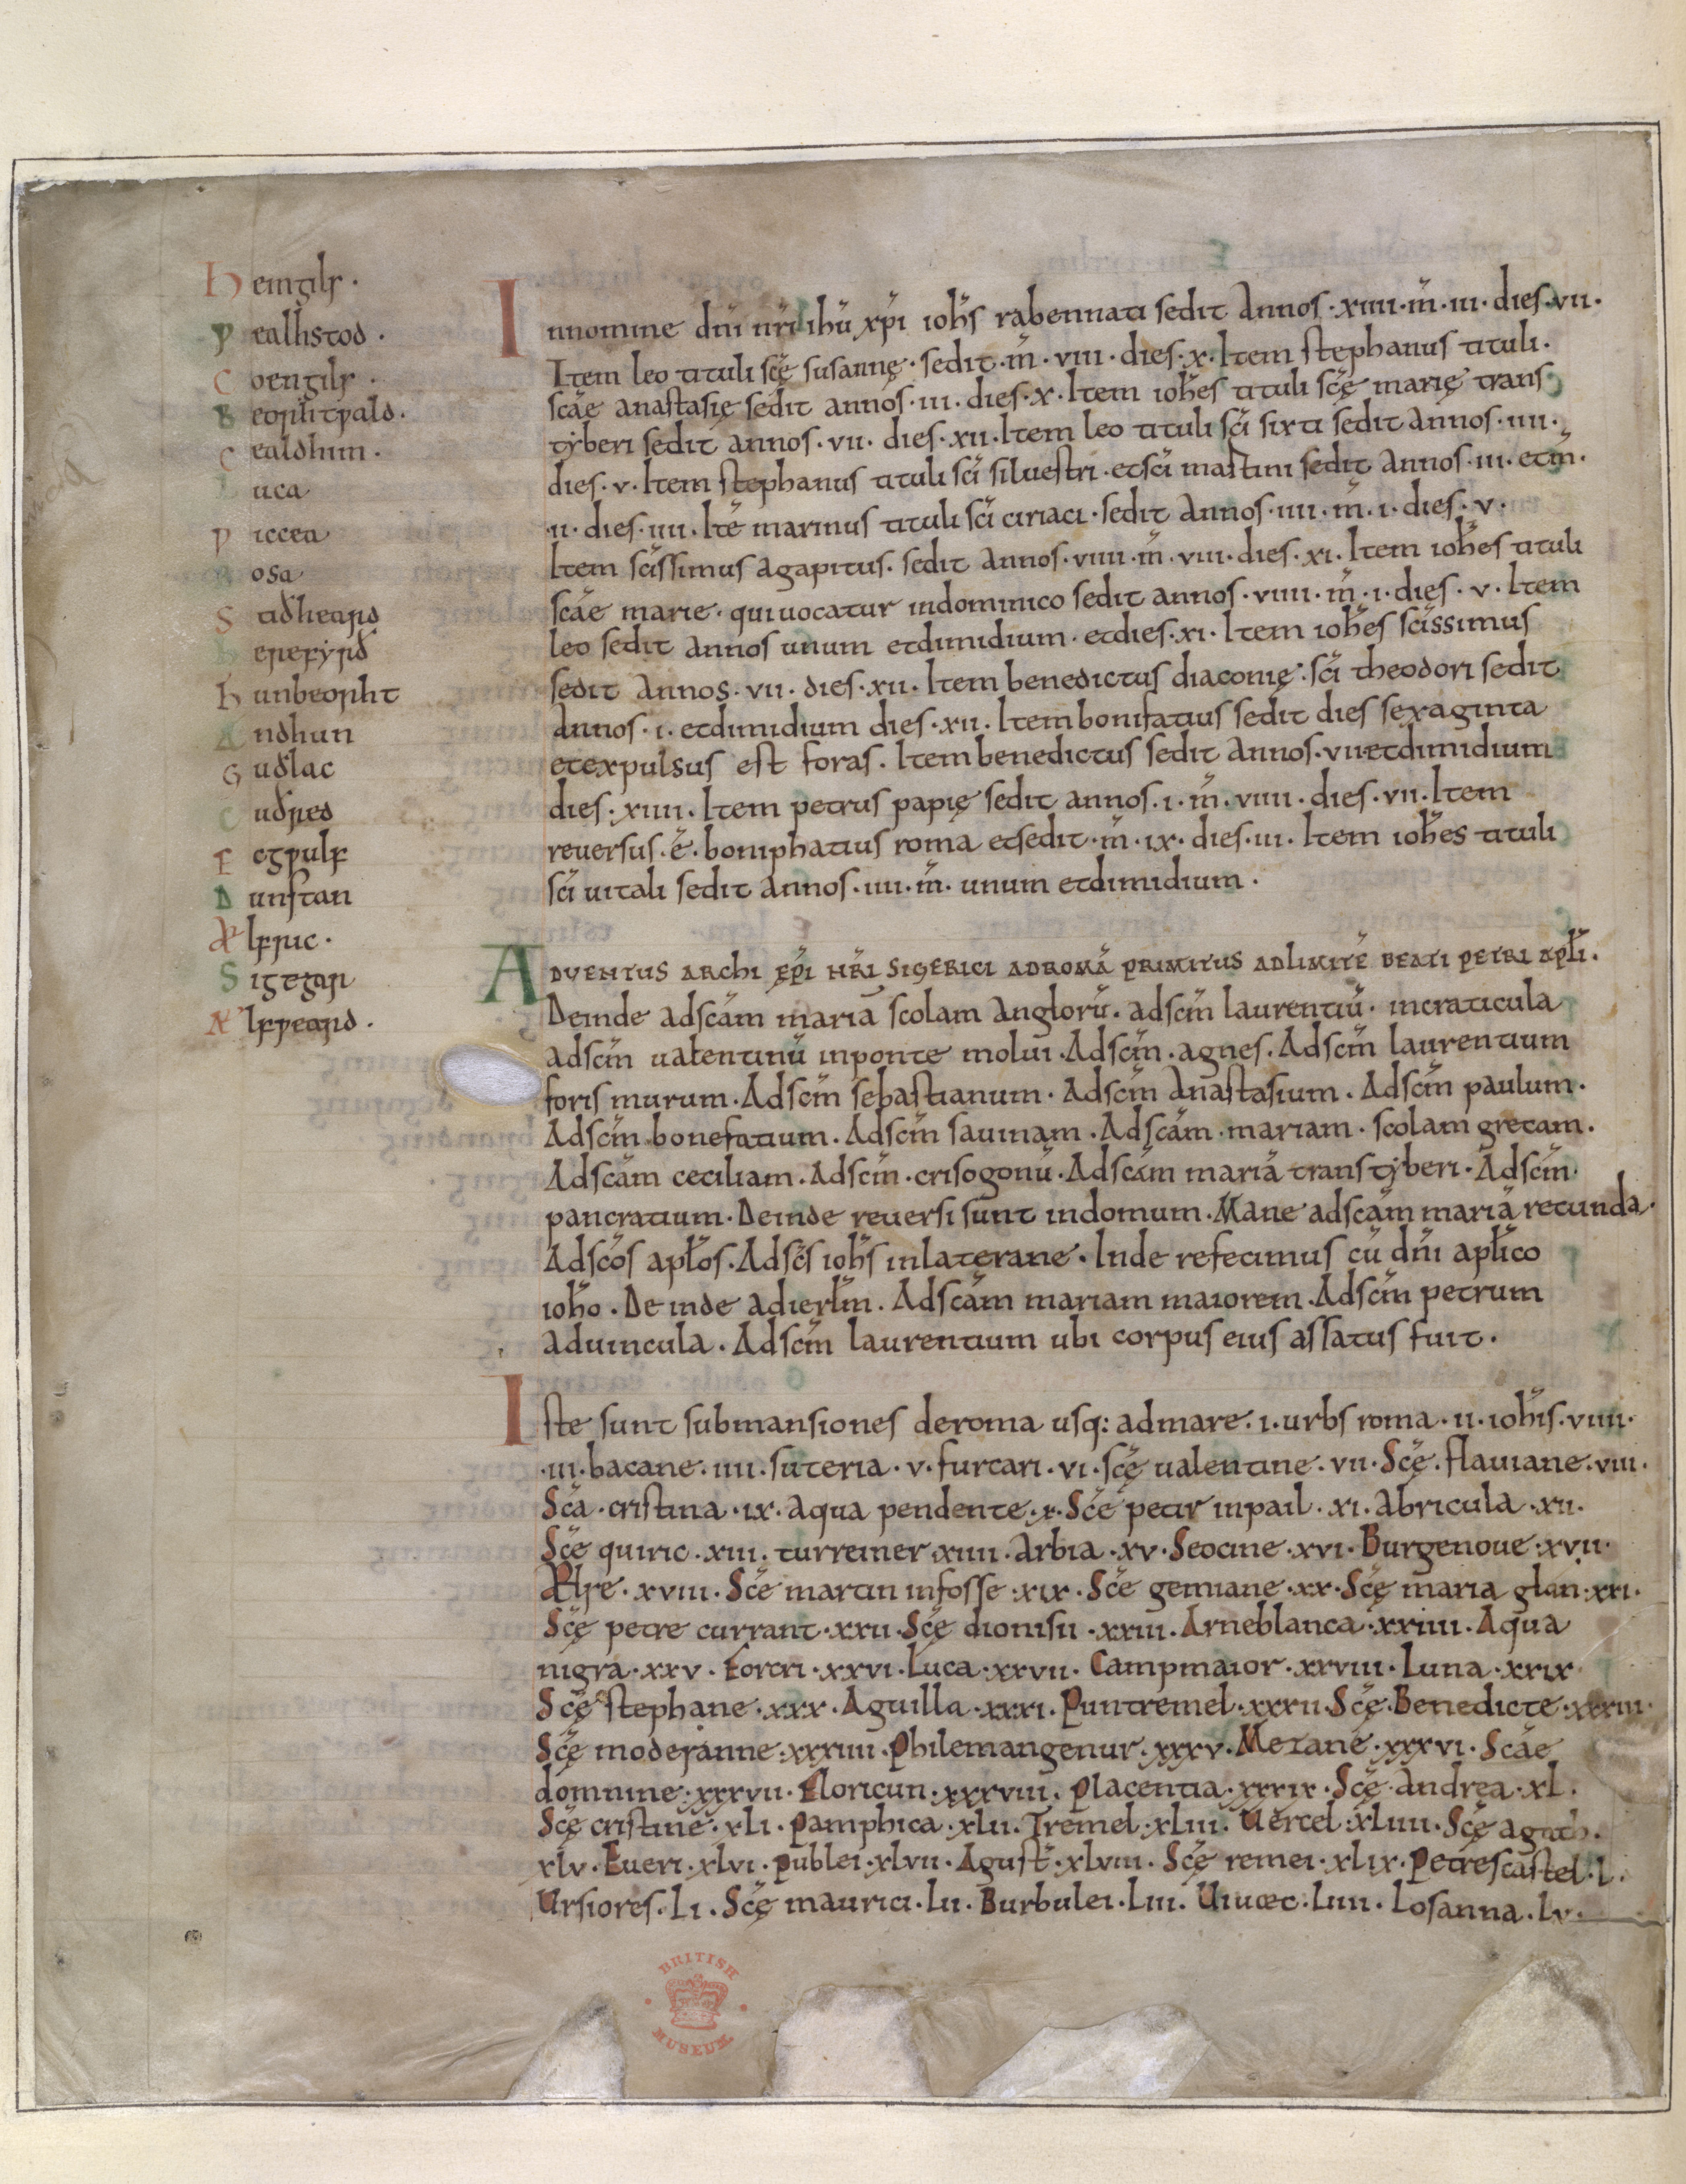 Hemgils·
Ƿealhstod·
Coengils·
Beorhtƿald·
Cealdhun·
Luca
Ƿiccea
Bosa
Stiðheard
Hereferð
Hunbeorht
Andhun
Guðlac
Cuðred
Ecgƿulf
Dunstan
Ælfric·
Sigegar
Ælfƿeard·
Innomine dn̄i nr̄i ihū xp̄i ioh̄s rabennati sedit annos·xiiii·m̄·iii·dies·vii·
Item leo tituli sc̄ę susannę·sedit·m̄·viii·dies·x·Item stephanus tituli·
sc̄ae anastasię sedit annos·iii·dies·x·Item ioh̄es tituli sc̄ę marię trans
tyberi sedit annos·vii·dies·xii·Item leo tituli sc̄i sixti sedit annos·iiii·
dies·v·Item stephanus tituli sc̄i siluestri·etsc̄i mastini sedit annos·iii·etm̄·
·ii·dies·iiii·Itē marinus tituli sc̄i ciriaci·sedit annos·iiii·m̄·i·dies·v·
Item sc̄issimus agapitus·sedit annos·viiii·m̄·viii·dies·xi·Item ioh̄es tituli
sc̄ae marie·quiuocatur indominico sedit annos·viiii·m̄·i·dies·v·Item
leo sedit annos unum etdimidium·etdies·xi·Item ioh̄es sc̄issimus
sedit annos·vii·dies·xii·Item benedictus diaconię·sc̄i theodori sedit
annos·i·etdimidium dies·xii·Item bonifatius sedit dies sexaginta
etexpulsus est foras·Item benedictus sedit annos·vii·etdimidium
dies·xiiii·Item petrus papię sedit annos·i·m̄·viiii·dies·vii·Item
reuersus·ē·boniphatius roma etsedit·m̄·ix·dies·iii·Item ioh̄es tituli
sc̄i uitali sedit annos·iiii·m̄·unum etdimidium·
ADVENTUS ARCHI EP̄I NR̄I SIGERICI ADROMĀ PRIMITUS ADLIMITĒ BEATI PETRI APL̄I·
Deinde adsc̄am mariā scolam anglorū·adsc̄m laurentiū·incraticula
adsc̄m ualentinū inponte molui·Adsc̄m·agnes·Adsc̄m laurentium
foris murum·Adsc̄m sebastianum·Adsc̄m anastasium·Adsc̄m paulum·
Adsc̄m·bonefatium·Adsc̄m sauinam·Adsc̄am·mariam·scolam grecam·
Adsc̄am ceciliam·Adsc̄m·crisogonū·Adsc̄am mariā transtyberi·Adsc̄m·
pancratium·Deinde reuersi sunt indomum·Mane adsc̄am mariā retunda·
Adsc̄os apl̄os·Adsc̄s ioh̄s inlaterane·Inde refecimus cū dn̄i apl̄ico
ioh̄o·Deinde adierl̄m·Adsc̄am mariam maiorem·Adsc̄m petrum
aduincula·Adsc̄m laurentium ubi corpus eius assatus fuit·
Iste sunt submansiones deroma usq: admare·i·urbs roma·ii·ioh̄is·viiii·
·iii·bacane·iiii·suteria·v·furcari·vi·sc̄ę ualentine·vii·Sc̄ę·flauiane·viii·
Sc̄a·cristina·ix·aqua pendente·x·Sc̄e petir inpail·xi·abricula·xii·
Sc̄e quiric·xiii·turreiner·xiiii·arbia·xv·Seocine·xvi·Burgenoue·xvii·
Ælse·xviii·Sc̄e martin infosse·xix·Sc̄e gemiane·xx·Sc̄ę maria glan·xxi·
Sc̄ę petre currant·xxii·Sc̄ę dionisii·xxiii·Arneblanca·xxiiii·Aqua
nigra·xxv·Forcri·xxvi·Luca·xxvii·Campmaior·xxviii·Luna·xxix·
Sc̄ę stephane·xxx·Aguilla·xxxi·Puntremel·xxxii·Sc̄ę·Benedicte·xxxiii·
Sc̄ę moderanne·xxxiiii·Philemangenur·xxxv·Mezane·xxxvi·Sc̄ae
domnine·xxxvii·Floricun·xxxviii·placentia·xxxix·Sc̄ę·andrea·xl·
Sc̄ę cristine·xli·pamphica·xlii·Tremel·xliii·Uercel·xliiii·Sc̄ę agath·
xlv·Eueri·xlvi·publei·xlvii·Agust·xlviii·Sc̄ę remei·xlix·petrescastel·l·
Ursiores·li·Sc̄ę maurici·lii·Burbulei·liii·Uiuæc·liiii·Losanna·lv·
BRITISH
MUSEUM